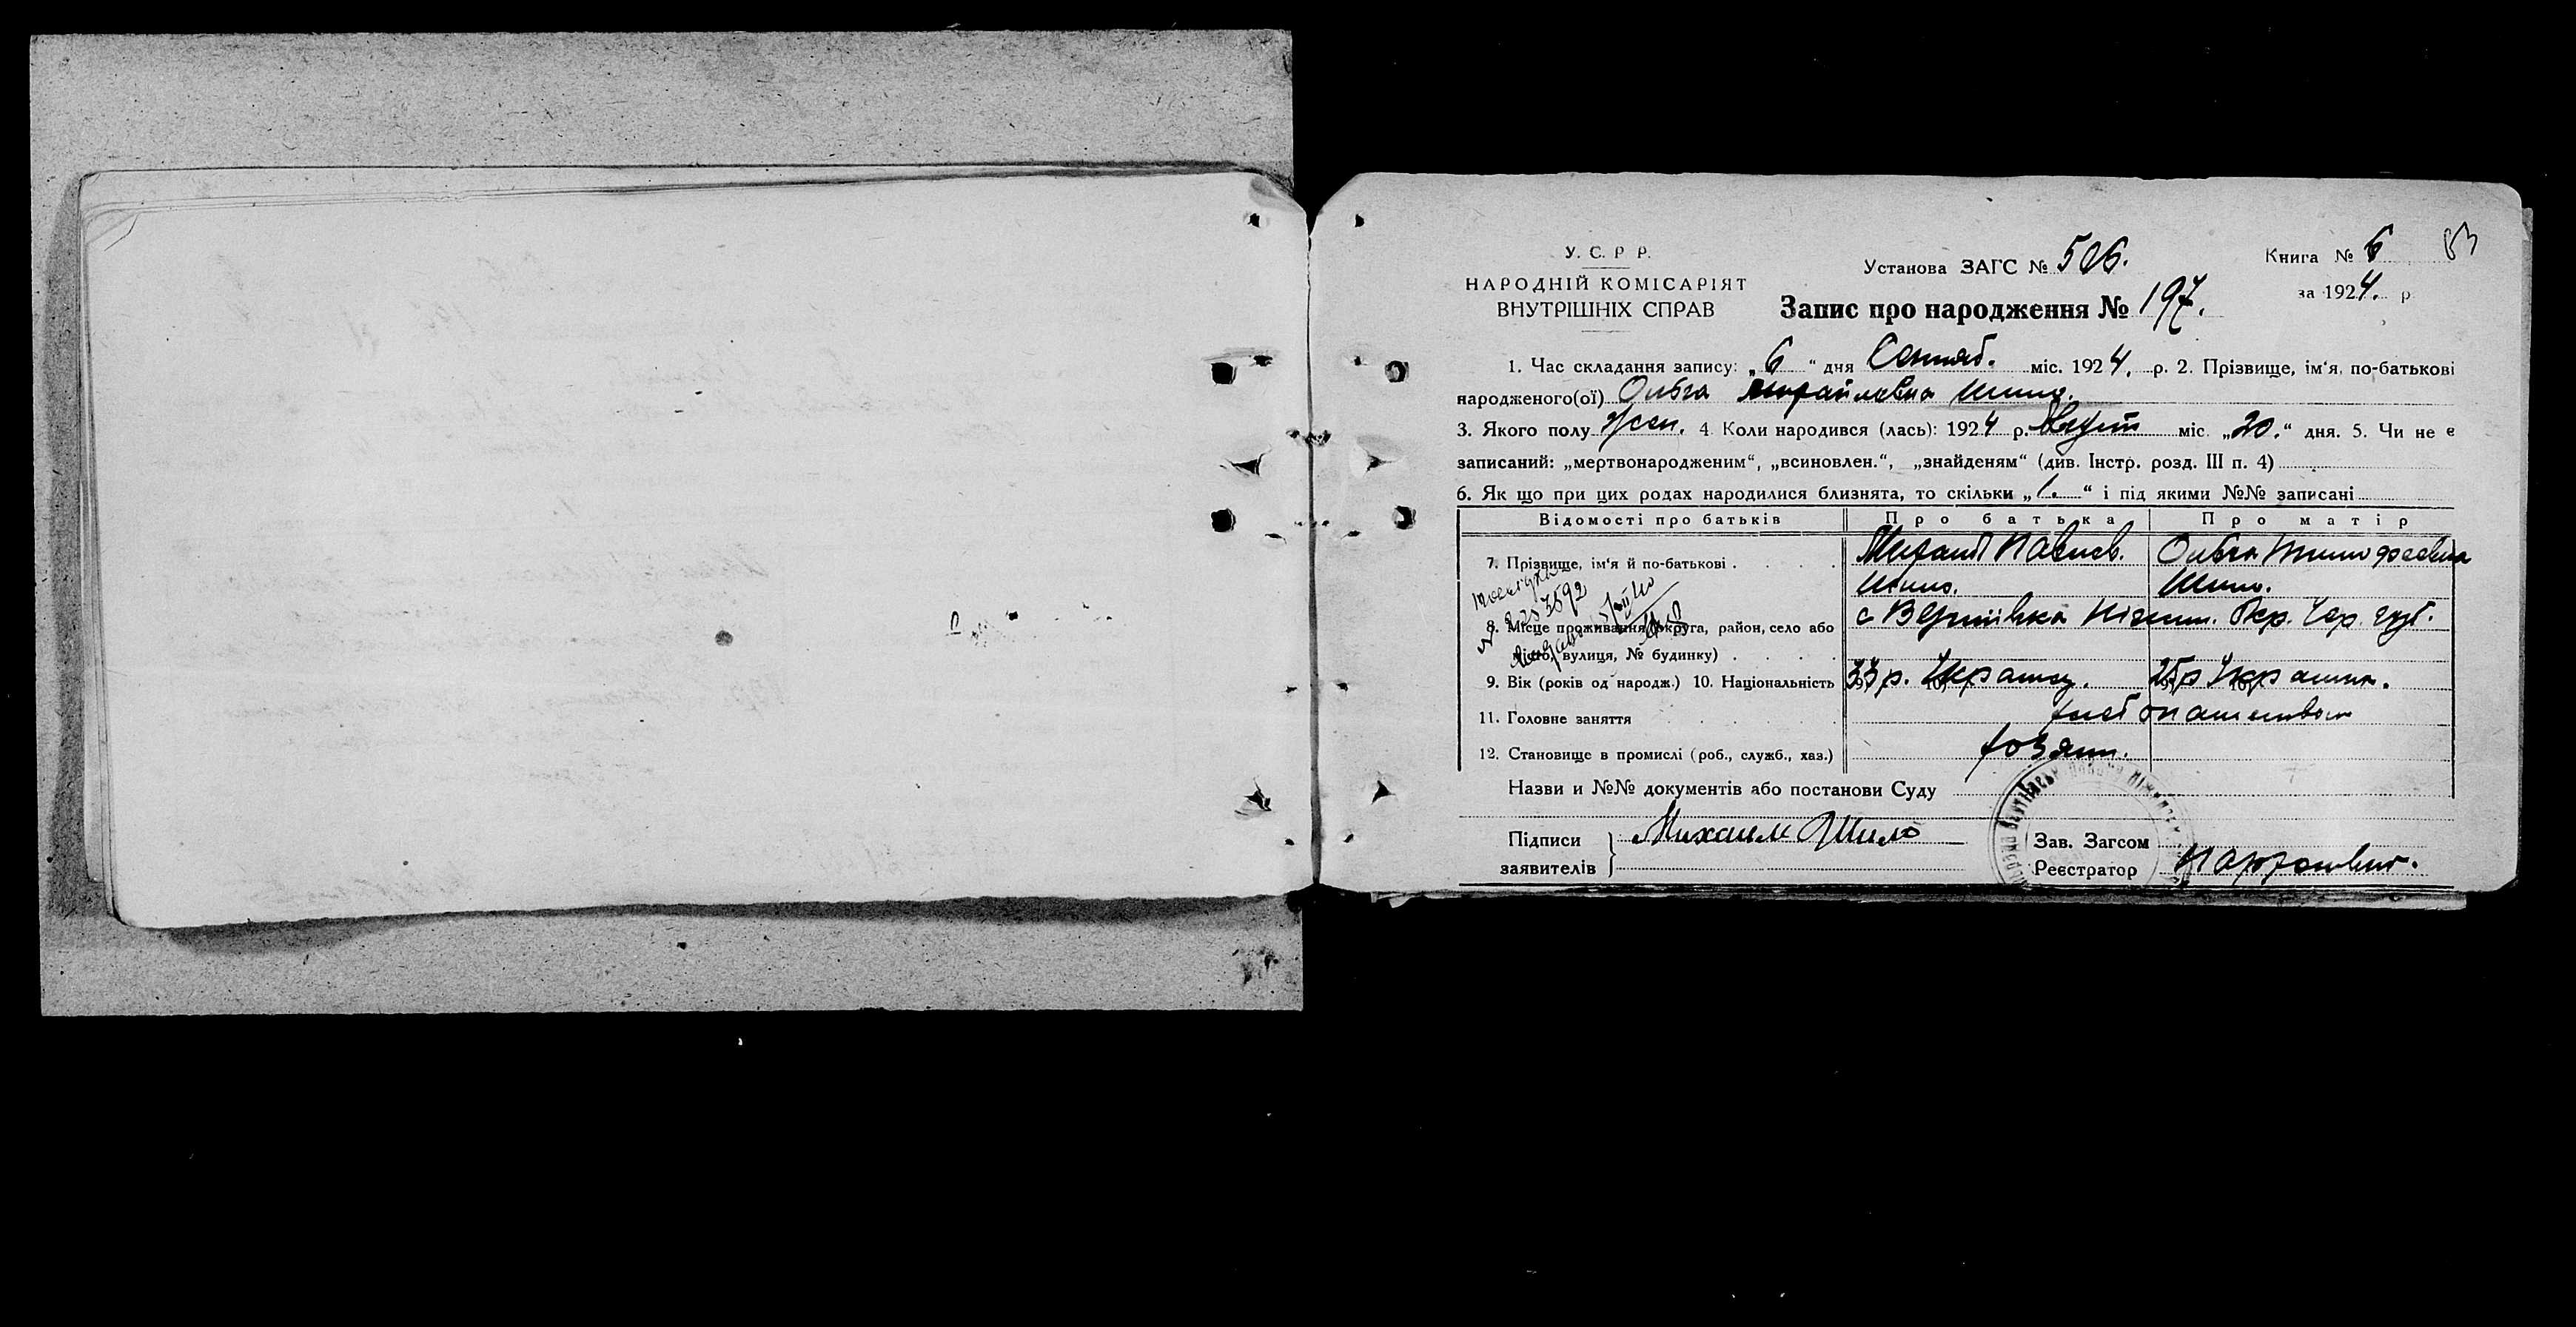 У. С. Р Р.
НАРОДНІЙ КОМІСАРІЯТ
ВНУТРІШНІХ СПРАВ
Установа ЗАГС № 506.
Книга № 6
83
за 1924. р
Запис про народження № 197.
1. Час складання запису: „6“ дня Сентяб. міс. 1924. р. 2. Прізвище, ім‘я, по-батькові
народженого(ої) Ольга Михайловна Шило.
3. Якого полу жен. 4. Коли народився (лась): 1924 р. Август міс. „20.“ дня. 5. Чи не є
записаний: „мертвонародженим“, „всиновлен.“, „знайденям“ (див. Інстр. розд. III п. 4)
6. Як що при цих родах народилися близнята, то скільки „1.“ і під якими №№ записані
Відомості про батьків Про батька Про матір
7. Прізвище, ім‘я й по-батькові Михаил Павлов. Шило. Ольга Тимофеевна Шило.
8. Місце проживання (округа, район, село або
місто, вулиця, № будинку) с Вертіївка Ніжин. Окр. Чер. губ.
9. Вік (років од народж.) 10. Національність 33 р. 25 р
11. Головне заняття хлебопашеством
12. Становище в промислі (роб., служб., хаз.) хозяин.
Назви и №№ документів або постанови Суду
Підписи
заявителів
Михаил Шило
Зав. Загсом
Реєстратор